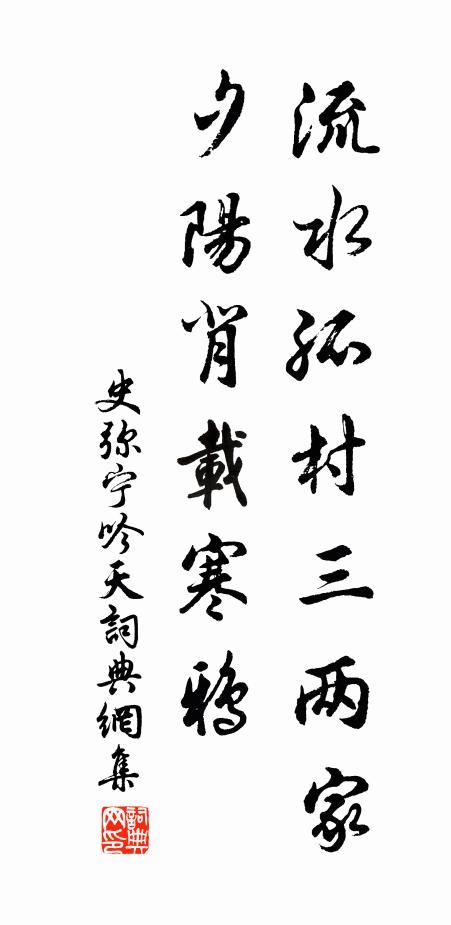 流水孤村三两家
夕陽背載寒鴉
史弥宁吟天詞典網集
詞典网印